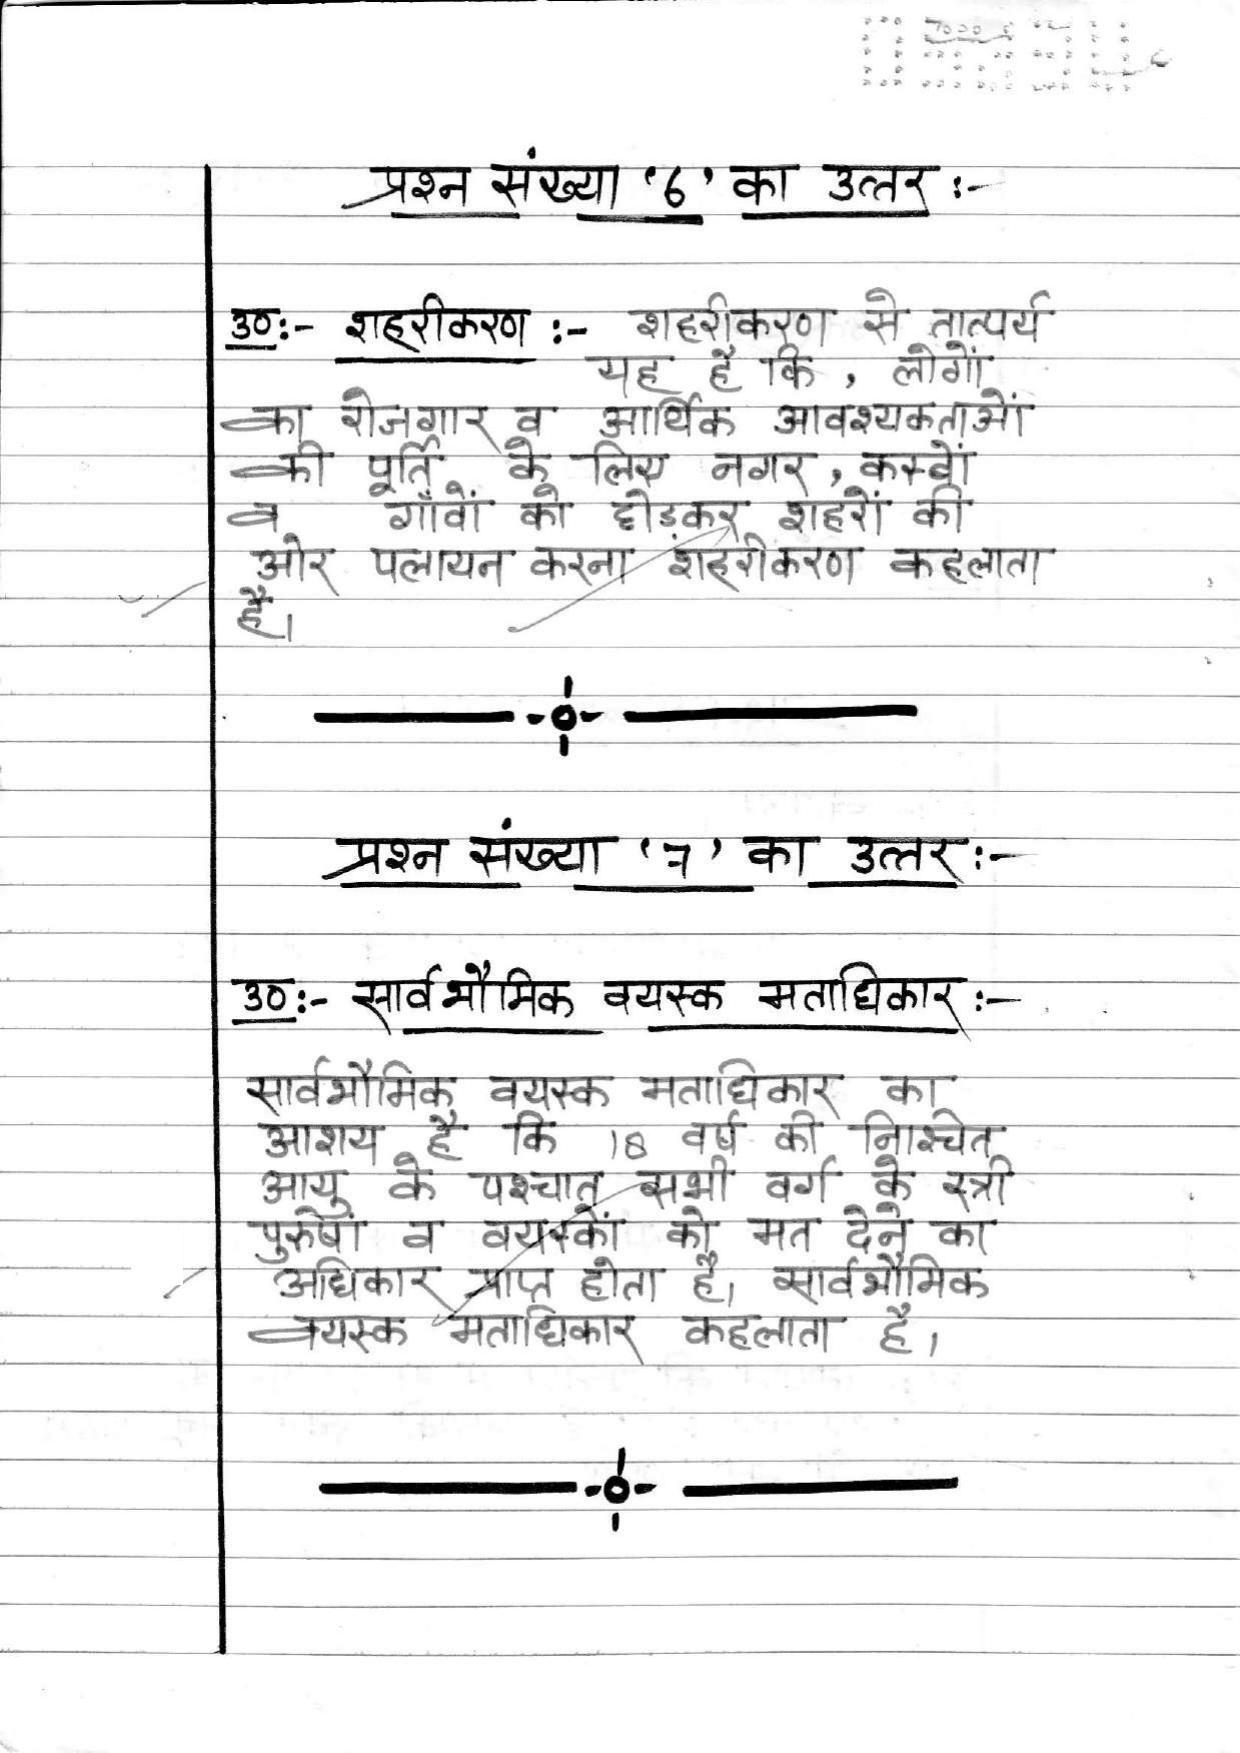 प्रश्न संख्या '6' का उत्तर :-
उ० :- शहरीकरण :- शहरीकरण से तात्पर्य
यह है कि , लोगों
का रोजगार व आर्थिक आवश्यकताओं
की पूर्ति के लिए नगर , कस्बों
व गाँवों को छोडकर शहरों की
ओर पलायन करना शहरीकरण कहलाता
है।
प्रश्न संख्या '7' का उत्तर :-
उ० :- सार्वभौमिक वयस्क मताधिकार :-
सार्वभौमिक वयस्क मताधिकार का
आशय है कि 18 वर्ष की निश्चित
आयु के पश्चात् सभी वर्ग के स्त्री
पुरुषों व वयस्कों को मत देने का
अधिकार प्राप्त होता है। सार्वभौमिक
वयस्क मताधिकार कहलाता है।